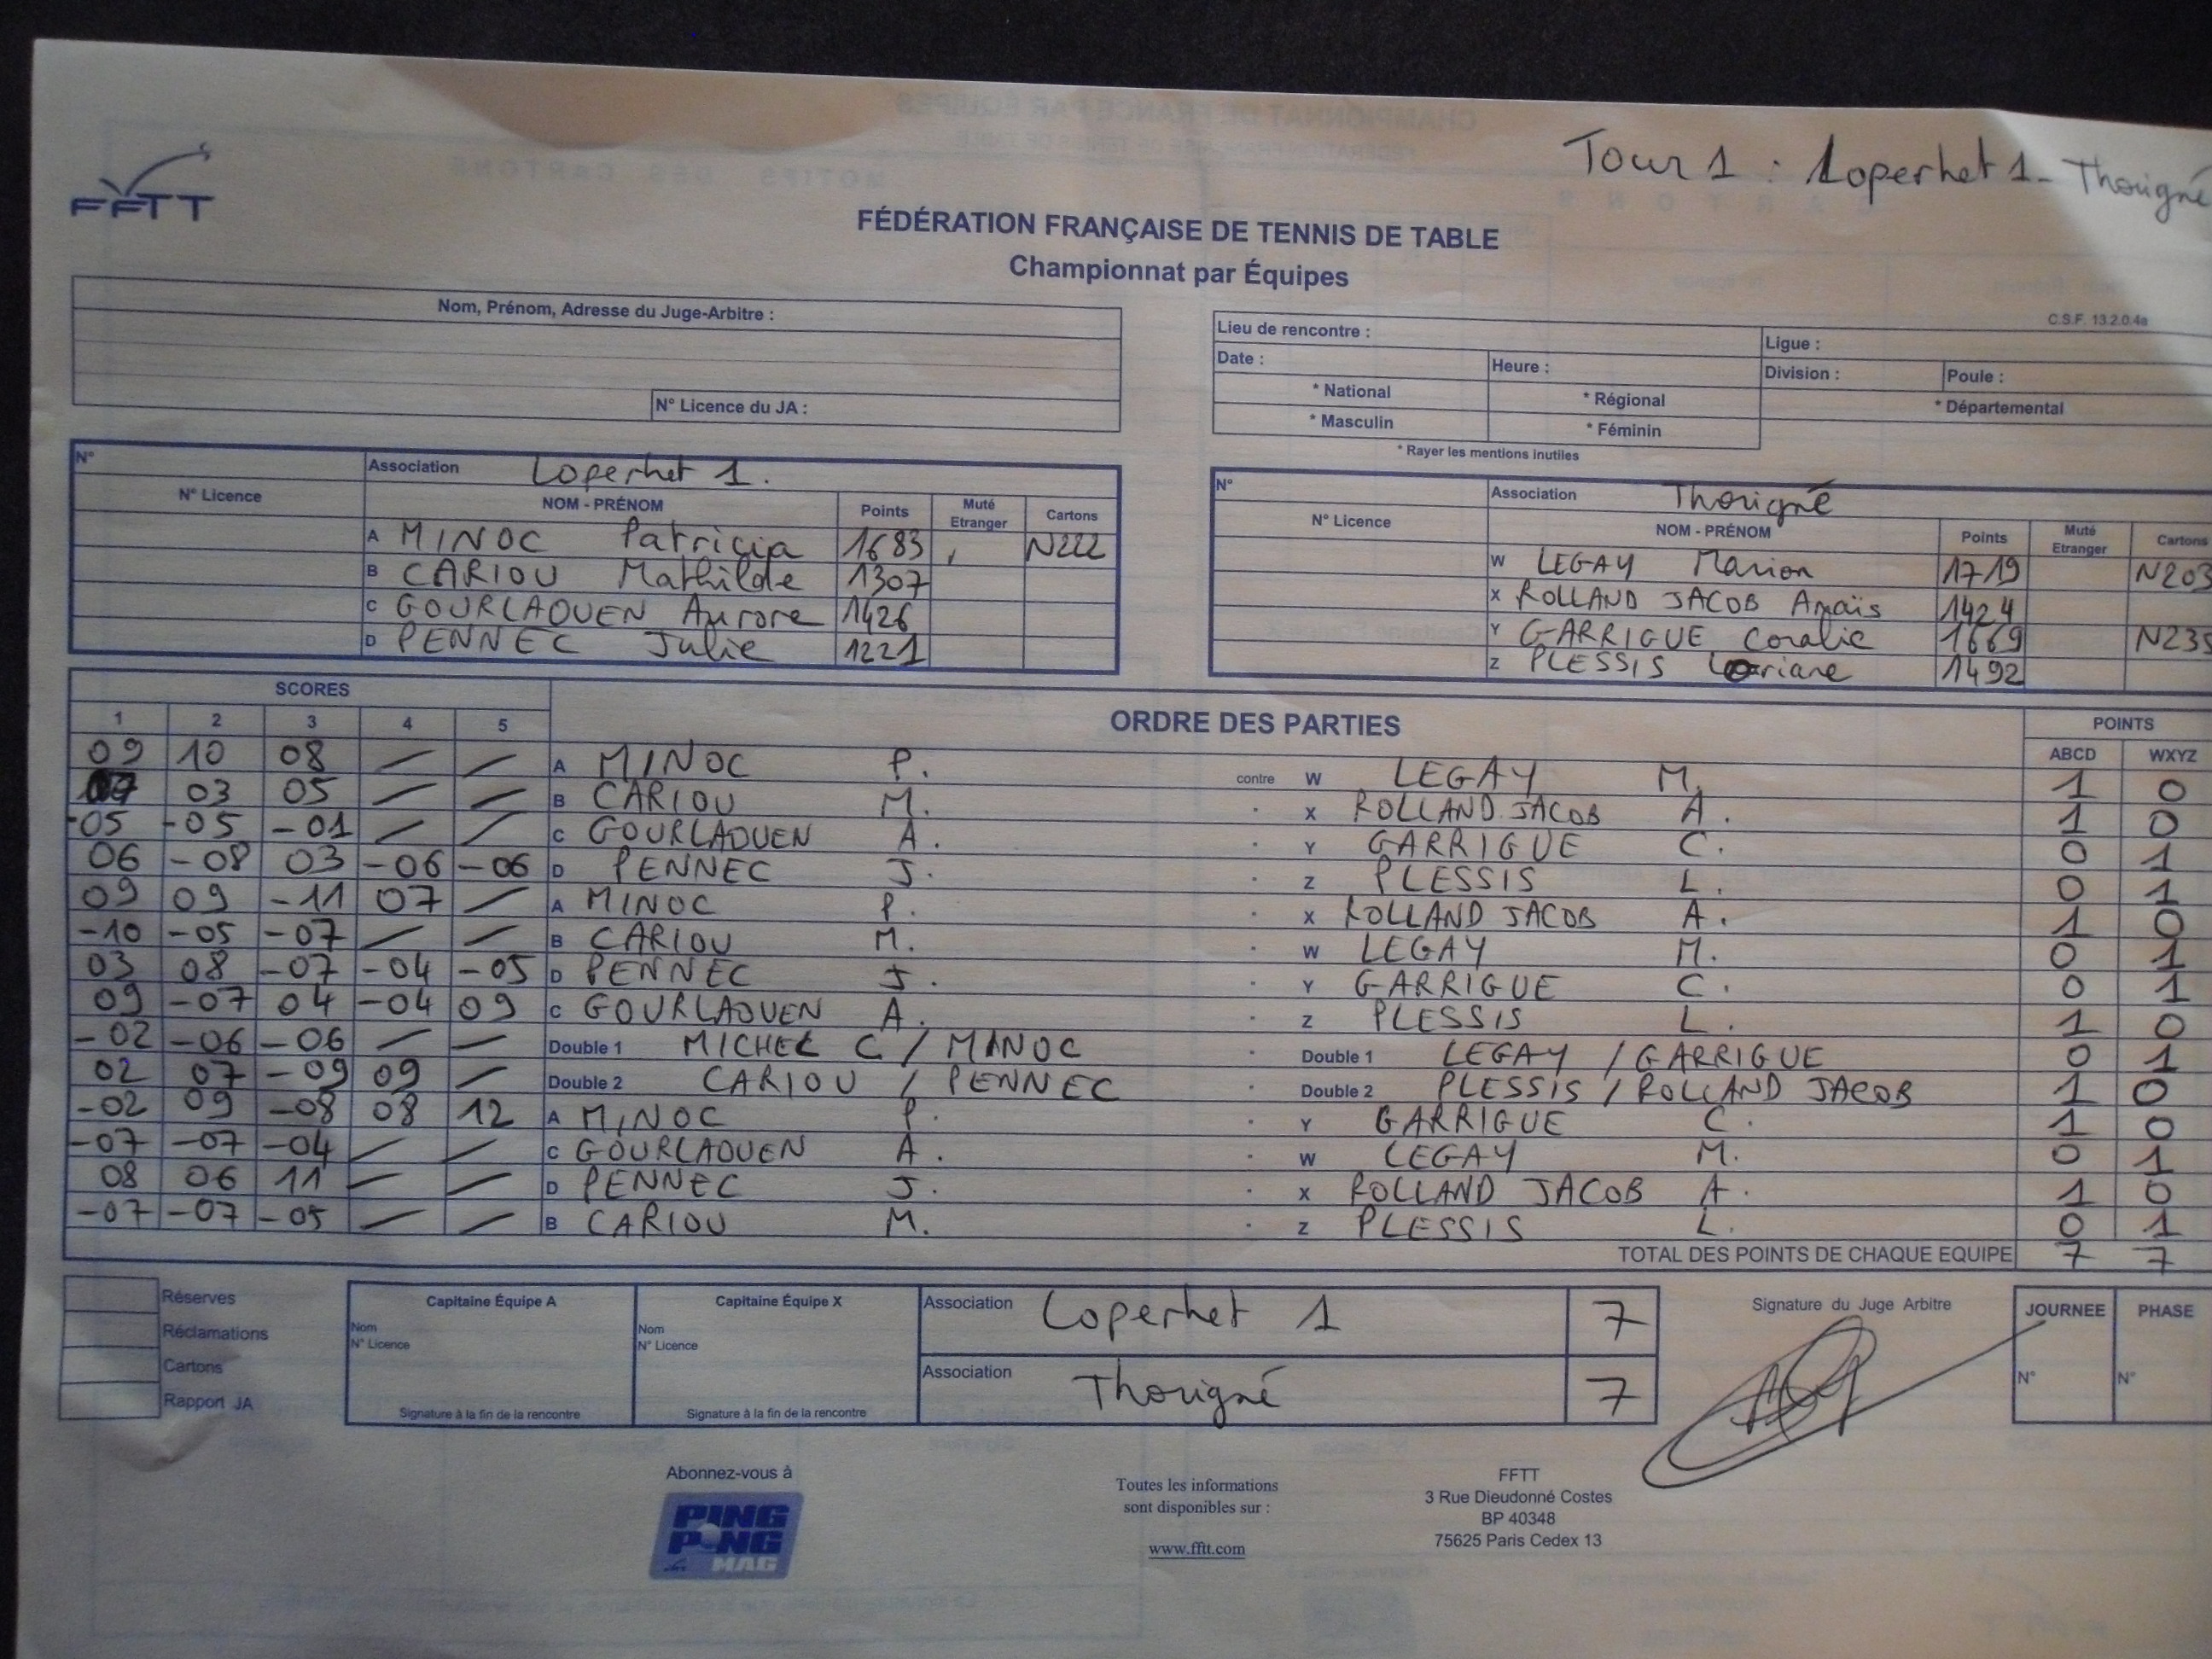 Tour 1 : Loperhet 1 - Thorigné
FFTT
FÉDÉRATION FRANÇAISE DE TENNIS DE TABLE
Championnat par Équipes
C.S.F. 13.2.0.4a
Nom, Prénom, Adresse du Juge-Arbitre :
N° Licence du JA :
Lieu de rencontre : Ligue :
Date : Heure : Division : Poule :
* National * Régional * Départemental
* Masculin * Féminin
* Rayer les mentions inutiles
N° Association Loperhet 1.
N° Licence NOM - PRÉNOM Points Muté Etranger Cartons
A MINOC Patricia 1683 N222
B CARIOU Mathilde 1307
C GOURLAOUEN Aurore 1426
D PENNEC Julie 1221
N° Association Thorigné
N° Licence NOM - PRÉNOM Points Muté Etranger Cartons
W LEGAY Marion 1719 N203
X ROLLAND JACOB Anaïs 1424
Y GARRIGUE Coralie 1669 N235
Z PLESSIS Loriane 1492
SCORES ORDRE DES PARTIES POINTS
1 2 3 4 5 ABCD WXYZ
09 10 08 — — A MINOC P. contre W LEGAY M. 1 0
07 03 05 — — B CARIOU M. " X ROLLAND JACOB A. 1 0
-05 -05 -01 — — C GOURLAOUEN A. " Y GARRIGUE C. 0 1
06 -08 03 -06 -06 D PENNEC J. " Z PLESSIS L. 0 1
09 09 -11 07 — A MINOC P. " X ROLLAND JACOB A. 1 0
-10 -05 -07 — — B CARIOU M. " W LEGAY M. 0 1
03 08 -07 -04 -05 D PENNEC J. " Y GARRIGUE C. 0 1
09 -07 04 -04 09 C GOURLAOUEN A. " Z PLESSIS L. 1 0
-02 -06 -06 — — Double 1 MICHEL C / MINOC " Double 1 LEGAY / GARRIGUE 0 1
02 07 -09 09 — Double 2 CARIOU / PENNEC " Double 2 PLESSIS / ROLLAND JACOB 1 0
-02 09 -08 08 12 A MINOC P. " Y GARRIGUE C. 1 0
-07 -07 -04 — — C GOURLAOUEN A. " W LEGAY M. 0 1
08 06 11 — — D PENNEC J. " X ROLLAND JACOB A. 1 0
-07 -07 -05 — — B CARIOU M. " Z PLESSIS L. 0 1
TOTAL DES POINTS DE CHAQUE EQUIPE 7 7
Réserves
Réclamations
Cartons
Rapport JA
Capitaine Équipe A
Nom
N° Licence
Signature à la fin de la rencontre
Capitaine Équipe X
Nom
N° Licence
Signature à la fin de la rencontre
Association Loperhet 1 7
Association Thorigné 7
Signature du Juge Arbitre
JOURNEE PHASE
N° N°
Abonnez-vous à
PING
PONG
MAG
Toutes les informations
sont disponibles sur :
www.fftt.com
FFTT
3 Rue Dieudonné Costes
BP 40348
75625 Paris Cedex 13